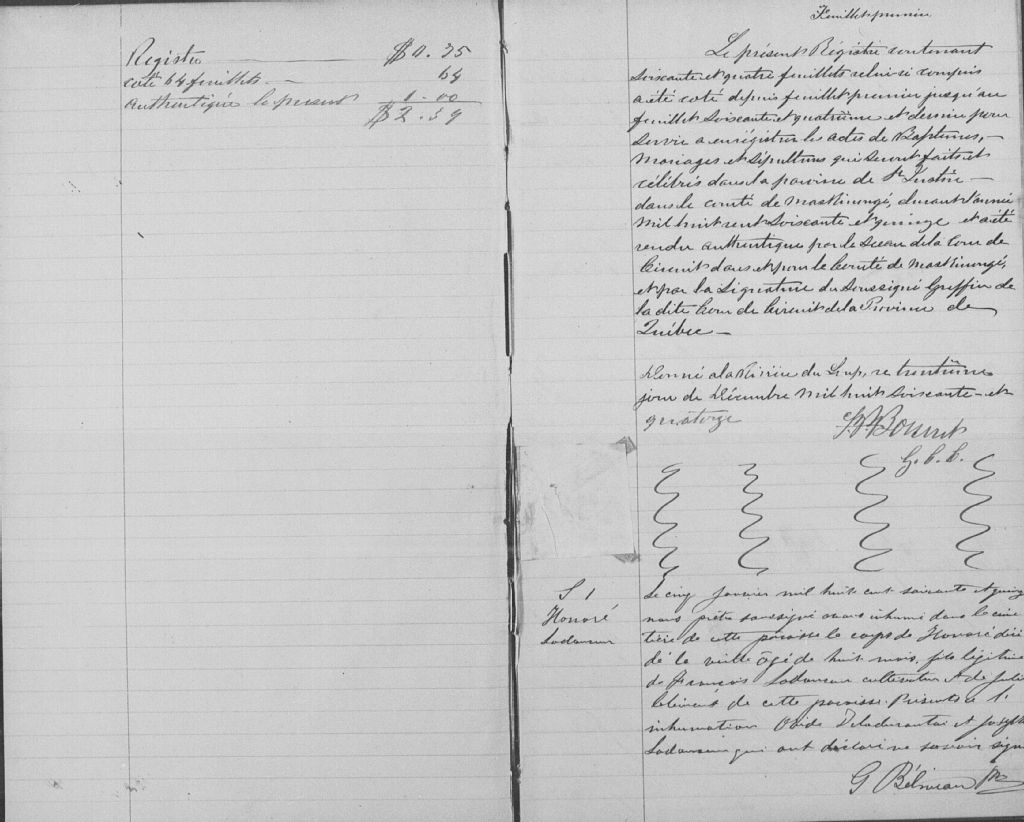 Registre $0.35
coté 64 feuillets — 64
authentiquée le présent 1-00
$2.59
Feuillet premier
Le présent Régistre contenant
soixante et quatre feuillets celui-ci compris
a été coté depuis feuillet premier jusqu'au
feuillet soixante et quatrième et dernier pour
servir a enrégistrer les actes de Baptêmes,—
Mariages et Sépultures qui seront faits et
célébrés dans la paroisse de St Justin —
dans le comté de Maskinongé, durant l'année
Mil huit cent soixante et quinze et a été
rendu authentique par le Sceau de la Cour de
Circuit dans et pour le Comté de Maskinongé,
et par la Signature du Soussigné Greffier de
la dite Cour de Circuit de la Province de
Québec —
Donné a la Rivière du Loup, ce trentième
jour de Décembre Mil huit soixante et
quatorze
G.C.C.
S 1
Honoré
Le cinq Janvier mil huit cent soixante et quinz
nous prêtre soussigné avons inhumé dans le cime
tière de cette paroisse le corps de Honoré décé
dé la veille âgé de huit mois, fils légitime
de François cultivateur et de Juli
Clément de cette paroisse. Présents à l'
inhumation Ovide et Joseph
qui ont déclaré ne savoir signe
G Bélineau Ptre